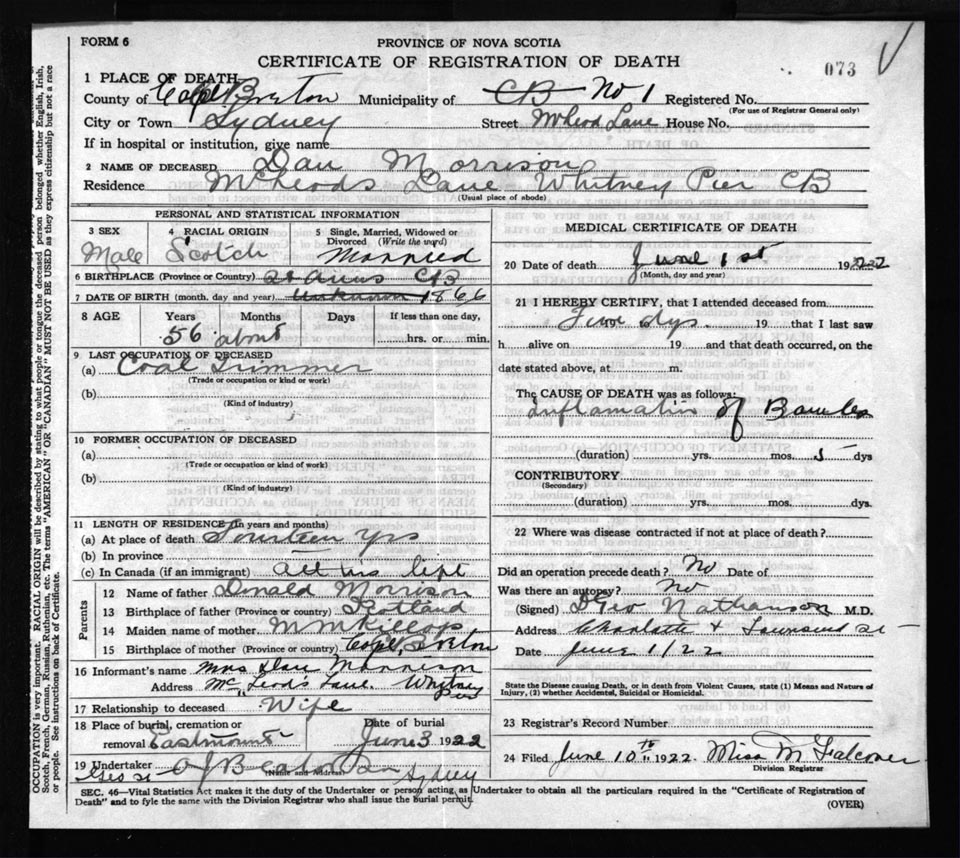 FORM 6
PROVINCE OF NOVA SCOTIA
CERTIFICATE OF REGISTRATION OF DEATH
073
1 PLACE OF DEATH
County of Cape Breton Municipality of CB No 1 Registered No.
(For use of Registrar General only)
City or Town Sydney Street McLeod Lane House No.
If in hospital or institution, give name
2 NAME OF DECEASED Dan Morrison
Residence McLeods Lane Whitney Pier CB
(Usual place of abode)
PERSONAL AND STATISTICAL INFORMATION
3 SEX Male
4 RACIAL ORIGIN Scotch
5 Single, Married, Widowed or Divorced (Write the word) Married
6 BIRTHPLACE (Province or Country) St Anns CB
7 DATE OF BIRTH (month, day and year) Unknown 1866
8 AGE Years Months Days If less than one day,
56 about hrs. or min.
9 LAST OCCUPATION OF DECEASED
(a) Coal Trimmer
(Trade or occupation or kind or work)
(b)
(Kind of industry)
10 FORMER OCCUPATION OF DECEASED
(a)
(Trade or occupation or kind or work)
(b)
(Kind of industry)
11 LENGTH OF RESIDENCE (In years and months)
(a) At place of death Fourteen yrs
(b) In province
(c) In Canada (if an immigrant) all his life
Parents
12 Name of father Donald Morrison
13 Birthplace of father (Province or country) Scotland
14 Maiden name of mother M McKillop
15 Birthplace of mother (Province or country) Cape Breton
16 Informant's name Mrs Dan Morrison
Address McLeod's Lane. Whitney Pier
17 Relationship to deceased Wife
18 Place of burial, cremation or removal Eastmount Date of burial June 3 1922
19 Undertaker Geo St A J Beaton Sydney
(Name and Address)
MEDICAL CERTIFICATE OF DEATH
20 Date of death June 1st 1922
(Month, day and year)
21 I HEREBY CERTIFY, that I attended deceased from
Five dys. 19 that I last saw
h alive on 19 and that death occurred, on the
date stated above, at m.
The CAUSE OF DEATH was as follows:
Inflamation of Bowles
(duration) yrs. mos. 5 dys
CONTRIBUTORY
(Secondary)
(duration) yrs. mos. dys
22 Where was disease contracted if not at place of death?
Did an operation precede death? No Date of
Was there an autopsy? No
(Signed) D Geo Nathanson M.D.
Address Charlotte + Townsend St
Date June 1/22
State the Disease causing Death, or in death from Violent Causes, state (1) Means and Nature of Injury, (2) whether Accidental, Suicidal or Homicidal.
23 Registrar's Record Number
24 Filed June 10th 1922 Miss M Falconer
Division Registrar
SEC. 46—Vital Statistics Act makes it the duty of the Undertaker or person acting as Undertaker to obtain all the particulars required in the "Certificate of Registration of
Death" and to fyle the same with the Division Registrar who shall issue the burial permit.
(OVER)
OCCUPATION is very important. RACIAL ORIGIN will be described by stating to what people or tongue the deceased person belonged whether English, Irish,
Scotch, French, German, Russian, Ruthenian, etc. The terms "AMERICAN" OR "CANADIAN" MUST NOT BE USED as they express citizenship but not a race
or people. See instructions on back of Certificate.